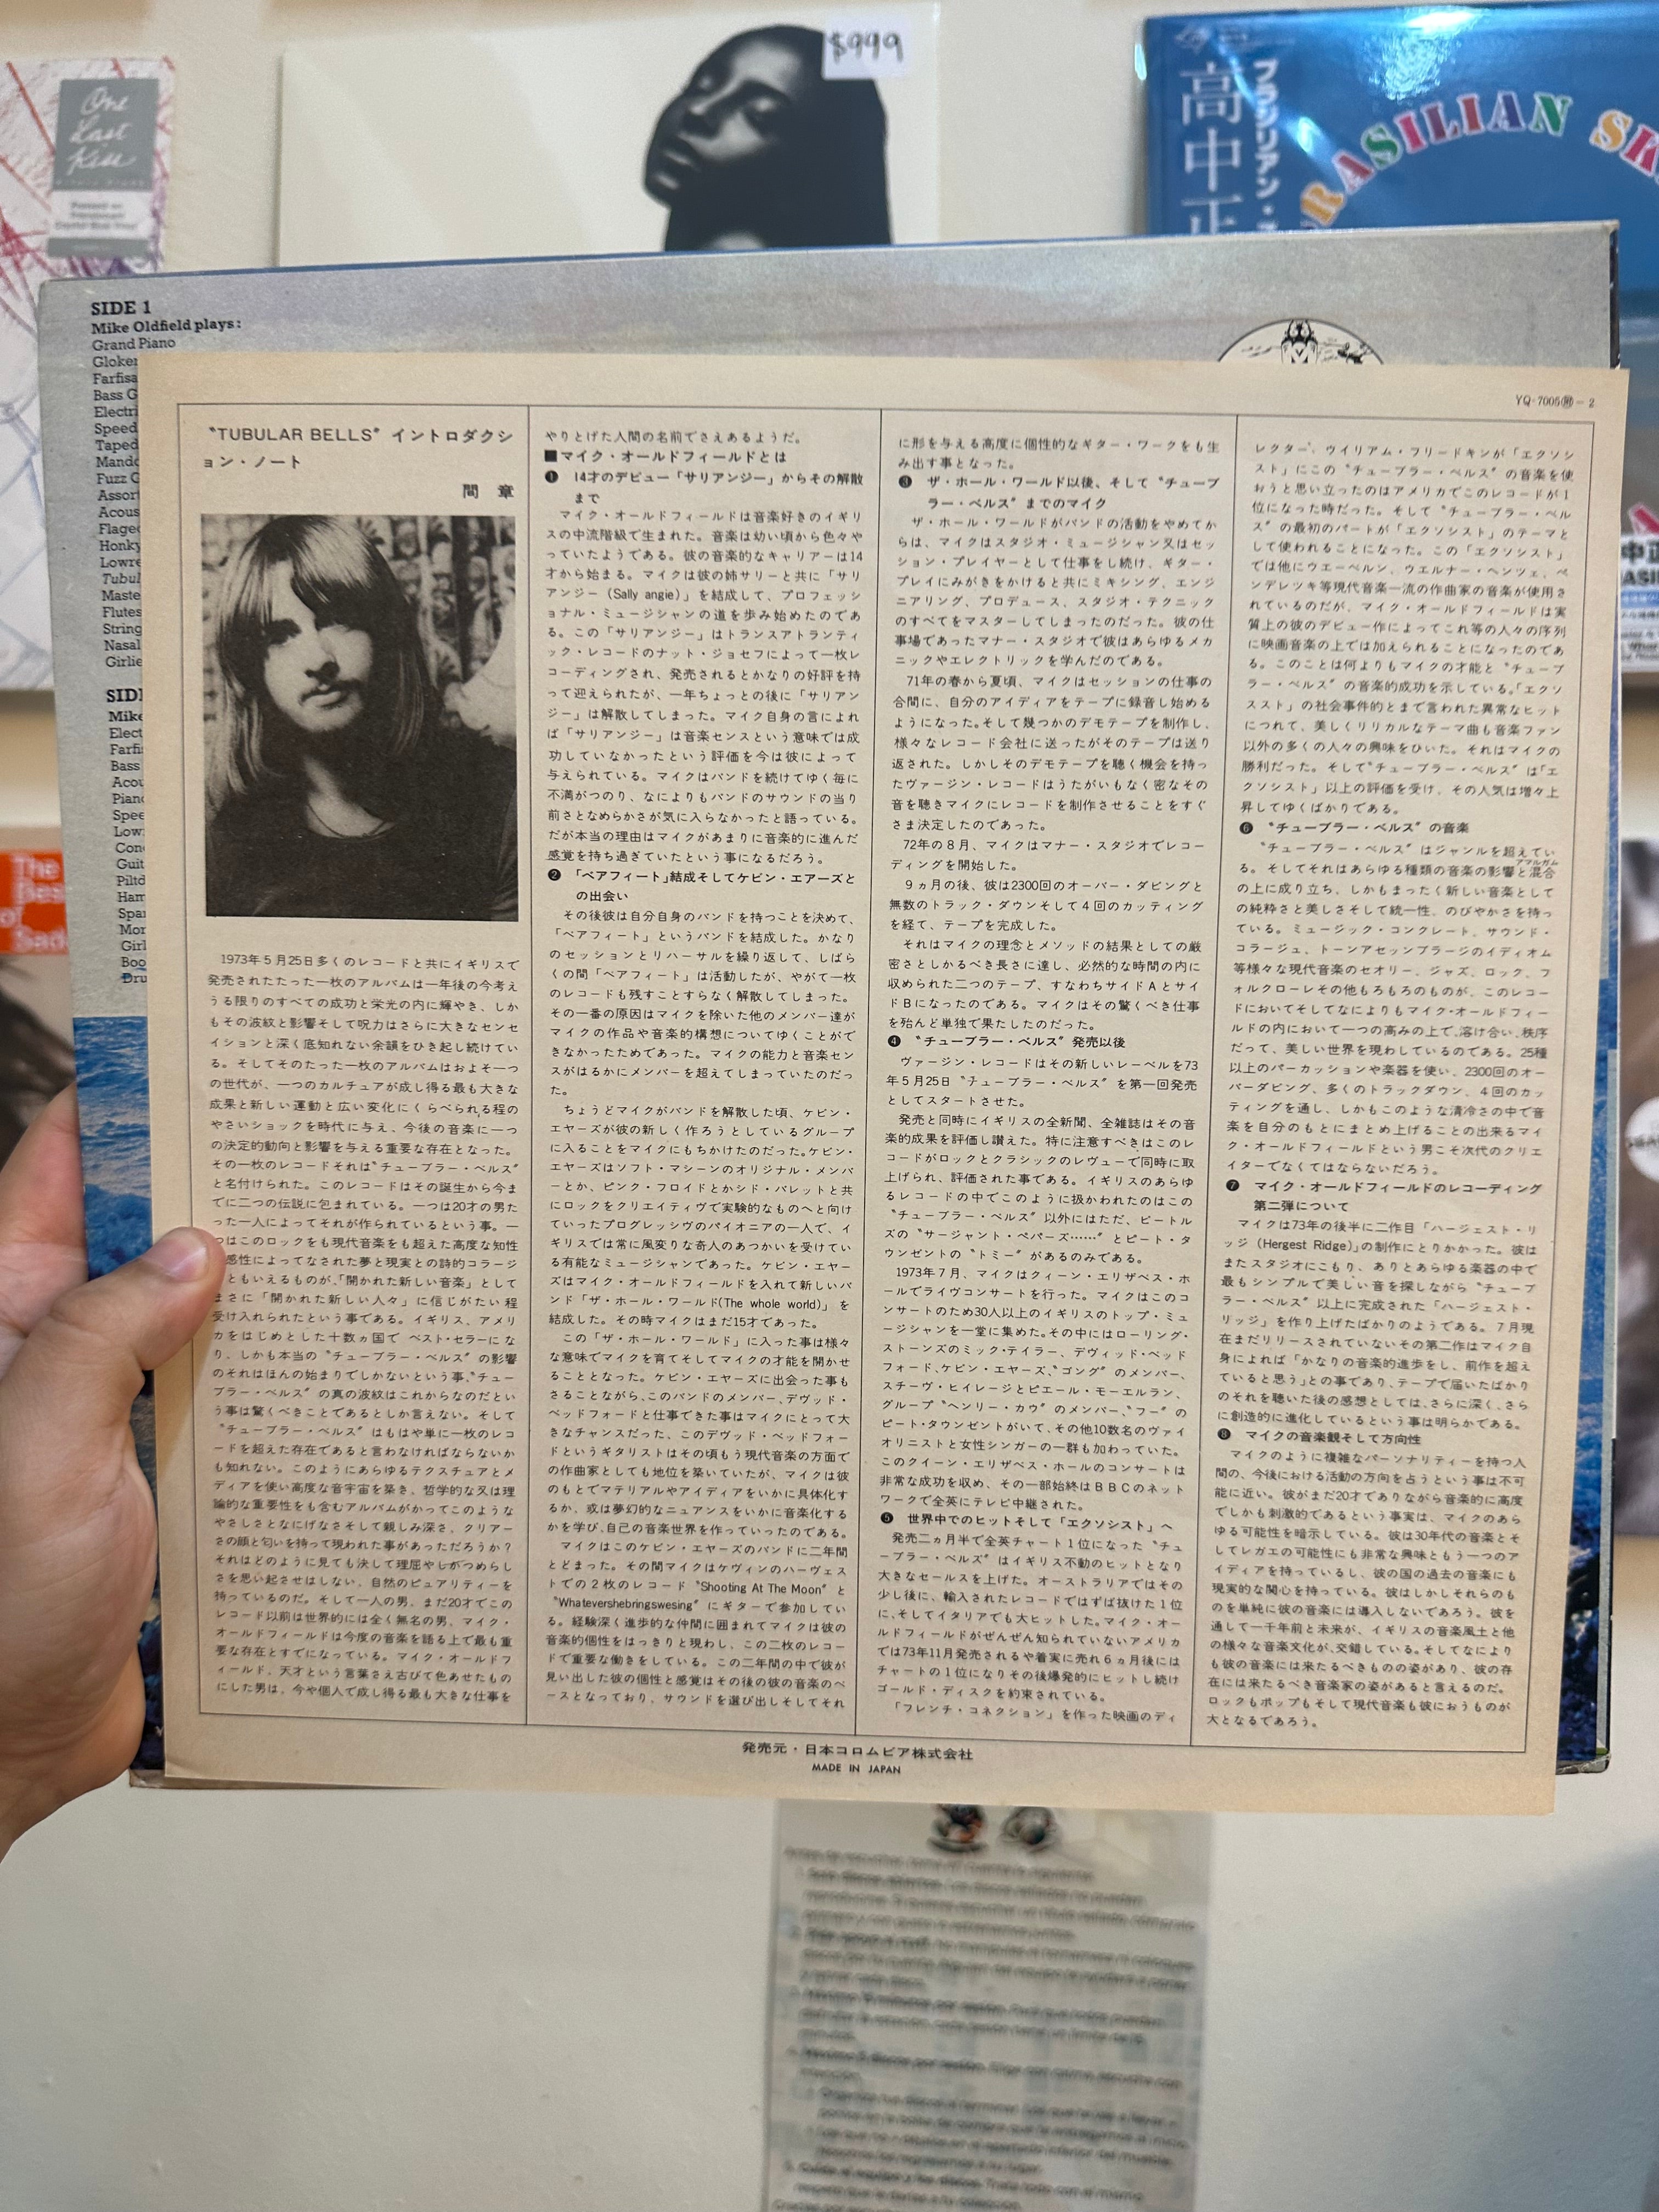 One
Last
Kiss
$999
高中正
ブラジリアン・ス
BRASILIAN SK
SIDE 1
Mike Oldfield plays:
Grand Piano
Gloker
Farfisa
Bass G
Electri
Speed
Taped
Mando
Fuzz G
Assort
Acous
Flageo
Honky
Lowre
Tubul
Maste
Flutes
String
Nasal
Girlie
SIDE
Mike
Elect
Farfis
Bass
Acou
Piano
Spee
Low
Con
Guit
Piltd
Ham
Spa
Mor
Girl
Boo
Dru
The
Best
of
Sade
YQ-7005㊞-2
〝TUBULAR BELLS〞イントロダクシ
ョン・ノート
間 章
1973年5月25日多くのレコードと共にイギリスで
発売されたたった一枚のアルバムは一年後の今考え
うる限りのすべての成功と栄光の内に輝やき、しか
もその波紋と影響そして呪力はさらに大きなセンセ
イションと深く底知れない余韻をひき起し続けてい
る。そしてそのたった一枚のアルバムはおよそ一つ
の世代が、一つのカルチュアが成し得る最も大きな
成果と新しい運動と広い変化にくらべられる程の
やさいショックを時代に与え、今後の音楽に一つ
の決定的動向と影響を与える重要な存在となった。
その一枚のレコードそれは〝チューブラー・ベルス〞
と名付けられた。このレコードはその誕生から今ま
でに二つの伝説に包まれている。一つは20才の男た
った一人によってそれが作られているという事。一
つはこのロックをも現代音楽をも超えた高度な知性
感性によってなされた夢と現実との詩的コラージ
ともいえるものが、「開かれた新しい音楽」として
まさに「開かれた新しい人々」に信じがたい程
受け入れられたという事である。イギリス、アメリ
カをはじめとした十数ヵ国で ベスト・セラーにな
り、しかも本当の〝チューブラー・ベルス〞の影響
のそれはほんの始まりでしかないという事、〝チュー
ブラー・ベルス〞の真の波紋はこれからなのだとい
う事は驚くべきことであるとしか言えない。そして
〝チューブラー・ベルス〞はもはや単に一枚のレコ
ードを超えた存在であると言わなければならないか
も知れない。このようにあらゆるテクスチュアとメ
ディアを使い高度な音宇宙を築き、哲学的な又は理
論的な重要性をも含むアルバムがかってこのような
やさしさとなにげなさそして親しみ深さ、クリアー
さの顔と匂いを持って現われた事があっただろうか?
それはどのように見ても決して理屈やしがつめらし
さを思い起させはしない、自然のピュアリティーを
持っているのだ。そして一人の男、まだ20才でこの
レコード以前は世界的には全く無名の男、マイク・
オールドフィールドは今度の音楽を語る上で最も重
要な存在とすでになっている。マイク・オールドフ
ィールド、天才という言葉さえ古びて色あせたもの
にした男は、今や個人で成し得る最も大きな仕事を
やりとげた人間の名前でさえあるようだ。
■マイク・オールドフィールドとは
❶ 14才のデビュー「サリアンジー」からその解散
まで
マイク・オールドフィールドは音楽好きのイギリ
スの中流階級で生まれた。音楽は幼い頃から色々や
っていたようである。彼の音楽的なキャリアーは14
才から始まる。マイクは彼の姉サリーと共に「サリ
アンジー (Sally angie)」を結成して、プロフェッシ
ョナル・ミュージシャンの道を歩み始めたのであ
る。この「サリアンジー」はトランスアトランティ
ック・レコードのナット・ジョセフによって一枚レ
コーディングされ、発売されるとかなりの好評を持
って迎えられたが、一年ちょっとの後に「サリアン
ジー」は解散してしまった。マイク自身の言によれ
ば「サリアンジー」は音楽センスという意味では成
功していなかったという評価を今は彼によって
与えられている。マイクはバンドを続けてゆく毎に
不満がつのり、なによりもバンドのサウンドの当り
前さとなめらかさが気に入らなかったと語っている。
だが本当の理由はマイクがあまりに音楽的に進んだ
感覚を持ち過ぎていたという事になるだろう。
❷ 「ベアフィート」結成そしてケビン・エアーズと
の出会い
その後彼は自分自身のバンドを持つことを決めて、
「ベアフィート」というバンドを結成した。かなり
のセッションとリハーサルを繰り返して、しばら
くの間「ベアフィート」は活動したが、やがて一枚
のレコードも残すことすらなく解散してしまった。
その一番の原因はマイクを除いた他のメンバー達が
マイクの作品や音楽的構想についてゆくことがで
きなかったためであった。マイクの能力と音楽セン
スがはるかにメンバーを超えてしまっていたのだっ
た。
ちょうどマイクがバンドを解散した頃、ケビン・
エヤーズが彼の新しく作ろうとしているグループ
に入ることをマイクにもちかけたのだった。ケビン・
エヤーズはソフト・マシーンのオリジナル・メンバ
ーとか、ピンク・フロイドとかシド・バレットと共
にロックをクリエイティヴで実験的なものへと向け
ていったプログレッシヴのパイオニアの一人で、イ
ギリスでは常に風変りな奇人のあつかいを受けてい
る有能なミュージシャンであった。ケビン・エヤー
ズはマイク・オールドフィールドを入れて新しいバ
ンド「ザ・ホール・ワールド(The whole world)」を
結成した。その時マイクはまだ15才であった。
この「ザ・ホール・ワールド」に入った事は様々
な意味でマイクを育てそしてマイクの才能を開かせ
ることとなった。ケビン・エヤーズに出会った事も
さることながら、このバンドのメンバー、デヴッド・
ベッドフォードと仕事できた事はマイクにとって大
きなチャンスだった、このデヴッド・ベッドフォー
ドというギタリストはその頃もう現代音楽の方面で
の作曲家としても地位を築いていたが、マイクは彼
のもとでマテリアルやアイディアをいかに具体化す
るか、或は夢幻的なニュアンスをいかに音楽化する
かを学び、自己の音楽世界を作っていったのである。
マイクはこのケビン・エヤーズのバンドに二年間
とどまった。その間マイクはケヴィンのハーヴェス
トでの2枚のレコード〝Shooting At The Moon〞と
〝Whatevershebringswesing〞にギターで参加してい
る。経験深く進歩的な仲間に囲まれてマイクは彼の
音楽的個性をはっきりと現わし、この二枚のレコー
ドで重要な働きをしている。この二年間の中で彼が
見い出した彼の個性と感覚はその後の彼の音楽のベ
ースとなっており、サウンドを選び出しそしてそれ
に形を与える高度に個性的なギター・ワークをも生
み出す事となった。
❸ ザ・ホール・ワールド以後、そして〝チューブ
ラー・ベルス〞までのマイク
ザ・ホール・ワールドがバンドの活動をやめてか
らは、マイクはスタジオ・ミュージシャン又はセッ
ション・プレイヤーとして仕事をし続け、ギター・
プレイにみがきをかけると共にミキシング、エンジ
ニアリング、プロデュース、スタジオ・テクニック
のすべてをマスターしてしまったのだった。彼の仕
事場であったマナー・スタジオで彼はあらゆるメカ
ニックやエレクトリックを学んだのである。
71年の春から夏頃、マイクはセッションの仕事の
合間に、自分のアイディアをテープに録音し始める
ようになった。そして幾つかのデモテープを制作し、
様々なレコード会社に送ったがそのテープは送り
返された。しかしそのデモテープを聴く機会を持っ
たヴァージン・レコードはうたがいもなく密なその
音を聴きマイクにレコードを制作させることをすぐ
さま決定したのであった。
72年の8月、マイクはマナー・スタジオでレコー
ディングを開始した。
9ヵ月の後、彼は2300回のオーバー・ダビングと
無数のトラック・ダウンそして4回のカッティング
を経て、テープを完成した。
それはマイクの理念とメソッドの結果としての厳
密さとしかるべき長さに達し、必然的な時間の内に
収められた二つのテープ、すなわちサイドAとサイ
ドBになったのである。マイクはその驚くべき仕事
を殆んど単独で果たしたのだった。
❹ 〝チューブラー・ベルス〞発売以後
ヴァージン・レコードはその新しいレーベルを73
年5月25日〝チューブラー・ベルス〞を第一回発売
としてスタートさせた。
発売と同時にイギリスの全新聞、全雑誌はその音
楽的成果を評価し讃えた。特に注意すべきはこのレ
コードがロックとクラシックのレヴューで同時に取
上げられ、評価された事である。イギリスのあらゆ
るレコードの中でこのように扱かわれたのはこの
〝チューブラー・ベルス〞以外にはただ、ビートル
ズの〝サージャント・ペパーズ……〞とピート・タ
ウンゼントの〝トミー〞があるのみである。
1973年7月、マイクはクィーン・エリザベス・ホ
ールでライヴコンサートを行った。マイクはこのコ
ンサートのため30人以上のイギリスのトップ・ミュ
ージシャンを一堂に集めた。その中にはローリング・
ストーンズのミック・テイラー、デヴィッド・ベッド
フォード、ケビン・エヤーズ、〝ゴング〞のメンバー、
スチーヴ・ヒイレージとピエール・モーエルラン、
グループ〝ヘンリー・カウ〞のメンバー、〝フー〞の
ピート・タウンゼントがいて、その他10数名のヴァイ
オリニストと女性シンガーの一群も加わっていた。
このクイーン・エリザベス・ホールのコンサートは
非常な成功を収め、その一部始終はBBCのネット
ワークで全英にテレビ中継された。
❺ 世界中でのヒットそして「エクソシスト」へ
発売二ヵ月半で全英チャート1位になった〝チュ
ーブラー・ベルズ〞はイギリス不動のヒットとなり
大きなセールスを上げた。オーストラリアではその
少し後に、輸入されたレコードではずば抜けた1位
に、そしてイタリアでも大ヒットした。マイク・オー
ルドフィールドがぜんぜん知られていないアメリカ
では73年11月発売されるや着実に売れ6ヵ月後には
チャートの1位になりその後爆発的にヒットし続け
ゴールド・ディスクを約束されている。
「フレンチ・コネクション」を作った映画のディ
レクター、ウイリアム・フリードキンが「エクソシ
スト」にこの〝チューブラー・ベルス〞の音楽を使
おうと思い立ったのはアメリカでこのレコードが1
位になった時だった。そして〝チューブラー・ベル
ス〞の最初のパートが「エクソシスト」のテーマと
して使われることになった。この「エクソシスト」
では他にウエーベルン、ウエルナー・ヘンツェ、ペ
ンデレツキ等現代音楽一流の作曲家の音楽が使用さ
れているのだが、マイク・オールドフィールドは実
質上の彼のデビュー作によってこれ等の人々の序列
に映画音楽の上では加えられることになったのであ
る。このことは何よりもマイクの才能と〝チューブ
ラー・ベルス〞の音楽的成功を示している。「エクソ
スト」の社会事件的とまで言われた異常なヒット
につれて、美しくリリカルなテーマ曲も音楽ファン
以外の多くの人々の興味をひいた。それはマイクの
勝利だった。そして〝チューブラー・ベルス〞は「エ
クソシスト」以上の評価を受け、その人気は増々上
昇してゆくばかりである。
❻ 〝チューブラー・ベルス〞の音楽
〝チューブラー・ベルス〞はジャンルを超えてい
る。そしてそれはあらゆる種類の音楽の影響と混合
アマルガム
の上に成り立ち、しかもまったく新しい音楽として
の純粋さと美しさそして統一性、のびやかさを持っ
ている。ミュージック・コンクレート、サウンド・
コラージュ、トーンアセッンブラージのイディオム
等様々な現代音楽のセオリー、ジャズ、ロック、フ
ォルクローレその他もろもろのものが、このレコー
ドにおいてそしてなによりもマイク・オールドフィー
ルドの内において一つの高みの上で、溶け合い、秩序
だって、美しい世界を現わしているのである。25種
以上のパーカッションや楽器を使い、2300回のオー
バーダビング、多くのトラックダウン、4回のカッ
ティングを通し、しかもこのような清冷さの中で音
楽を自分のもとにまとめ上げることの出来るマイ
ク・オールドフィールドという男こそ次代のクリエ
イターでなくてはならないだろう。
❼ マイク・オールドフィールドのレコーディング
第二弾について
マイクは73年の後半に二作目「ハージェスト・リ
ッジ (Hergest Ridge)」の制作にとりかかった。彼は
またスタジオにこもり、ありとあらゆる楽器の中で
最もシンプルで美しい音を探しながら〝チューブ
ラー・ベルス〞以上に完成された「ハージェスト・
リッジ」を作り上げたばかりのようである。7月現
在まだリリースされていないその第二作はマイク自
身によれば「かなりの音楽的進歩をし、前作を超え
ていると思う」との事であり、テープで届いたばかり
のそれを聴いた後の感想としては、さらに深く、さら
に創造的に進化しているという事は明らかである。
❽ マイクの音楽観そして方向性
マイクのように複雑なパーソナリティーを持つ人
間の、今後における活動の方向を占うという事は不可
能に近い。彼がまだ20才でありながら音楽的に高度
でしかも刺激的であるという事実は、マイクのあら
ゆる可能性を暗示している。彼は30年代の音楽とそ
してレガエの可能性にも非常な興味ともう一つのア
イディアを持っているし、彼の国の過去の音楽にも
現実的な関心を持っている。彼はしかしそれらのも
のを単純に彼の音楽には導入しないであろう。彼を
通して一千年前と未来が、イギリスの音楽風土と他
の様々な音楽文化が、交錯している。そしてなにより
も彼の音楽には来たるべきものの姿があり、彼の存
在には来たるべき音楽家の姿があると言えるのだ。
ロックもポップもそして現代音楽も彼におうものが
大となるであろう。
発売元・日本コロムビア株式会社
MADE IN JAPAN